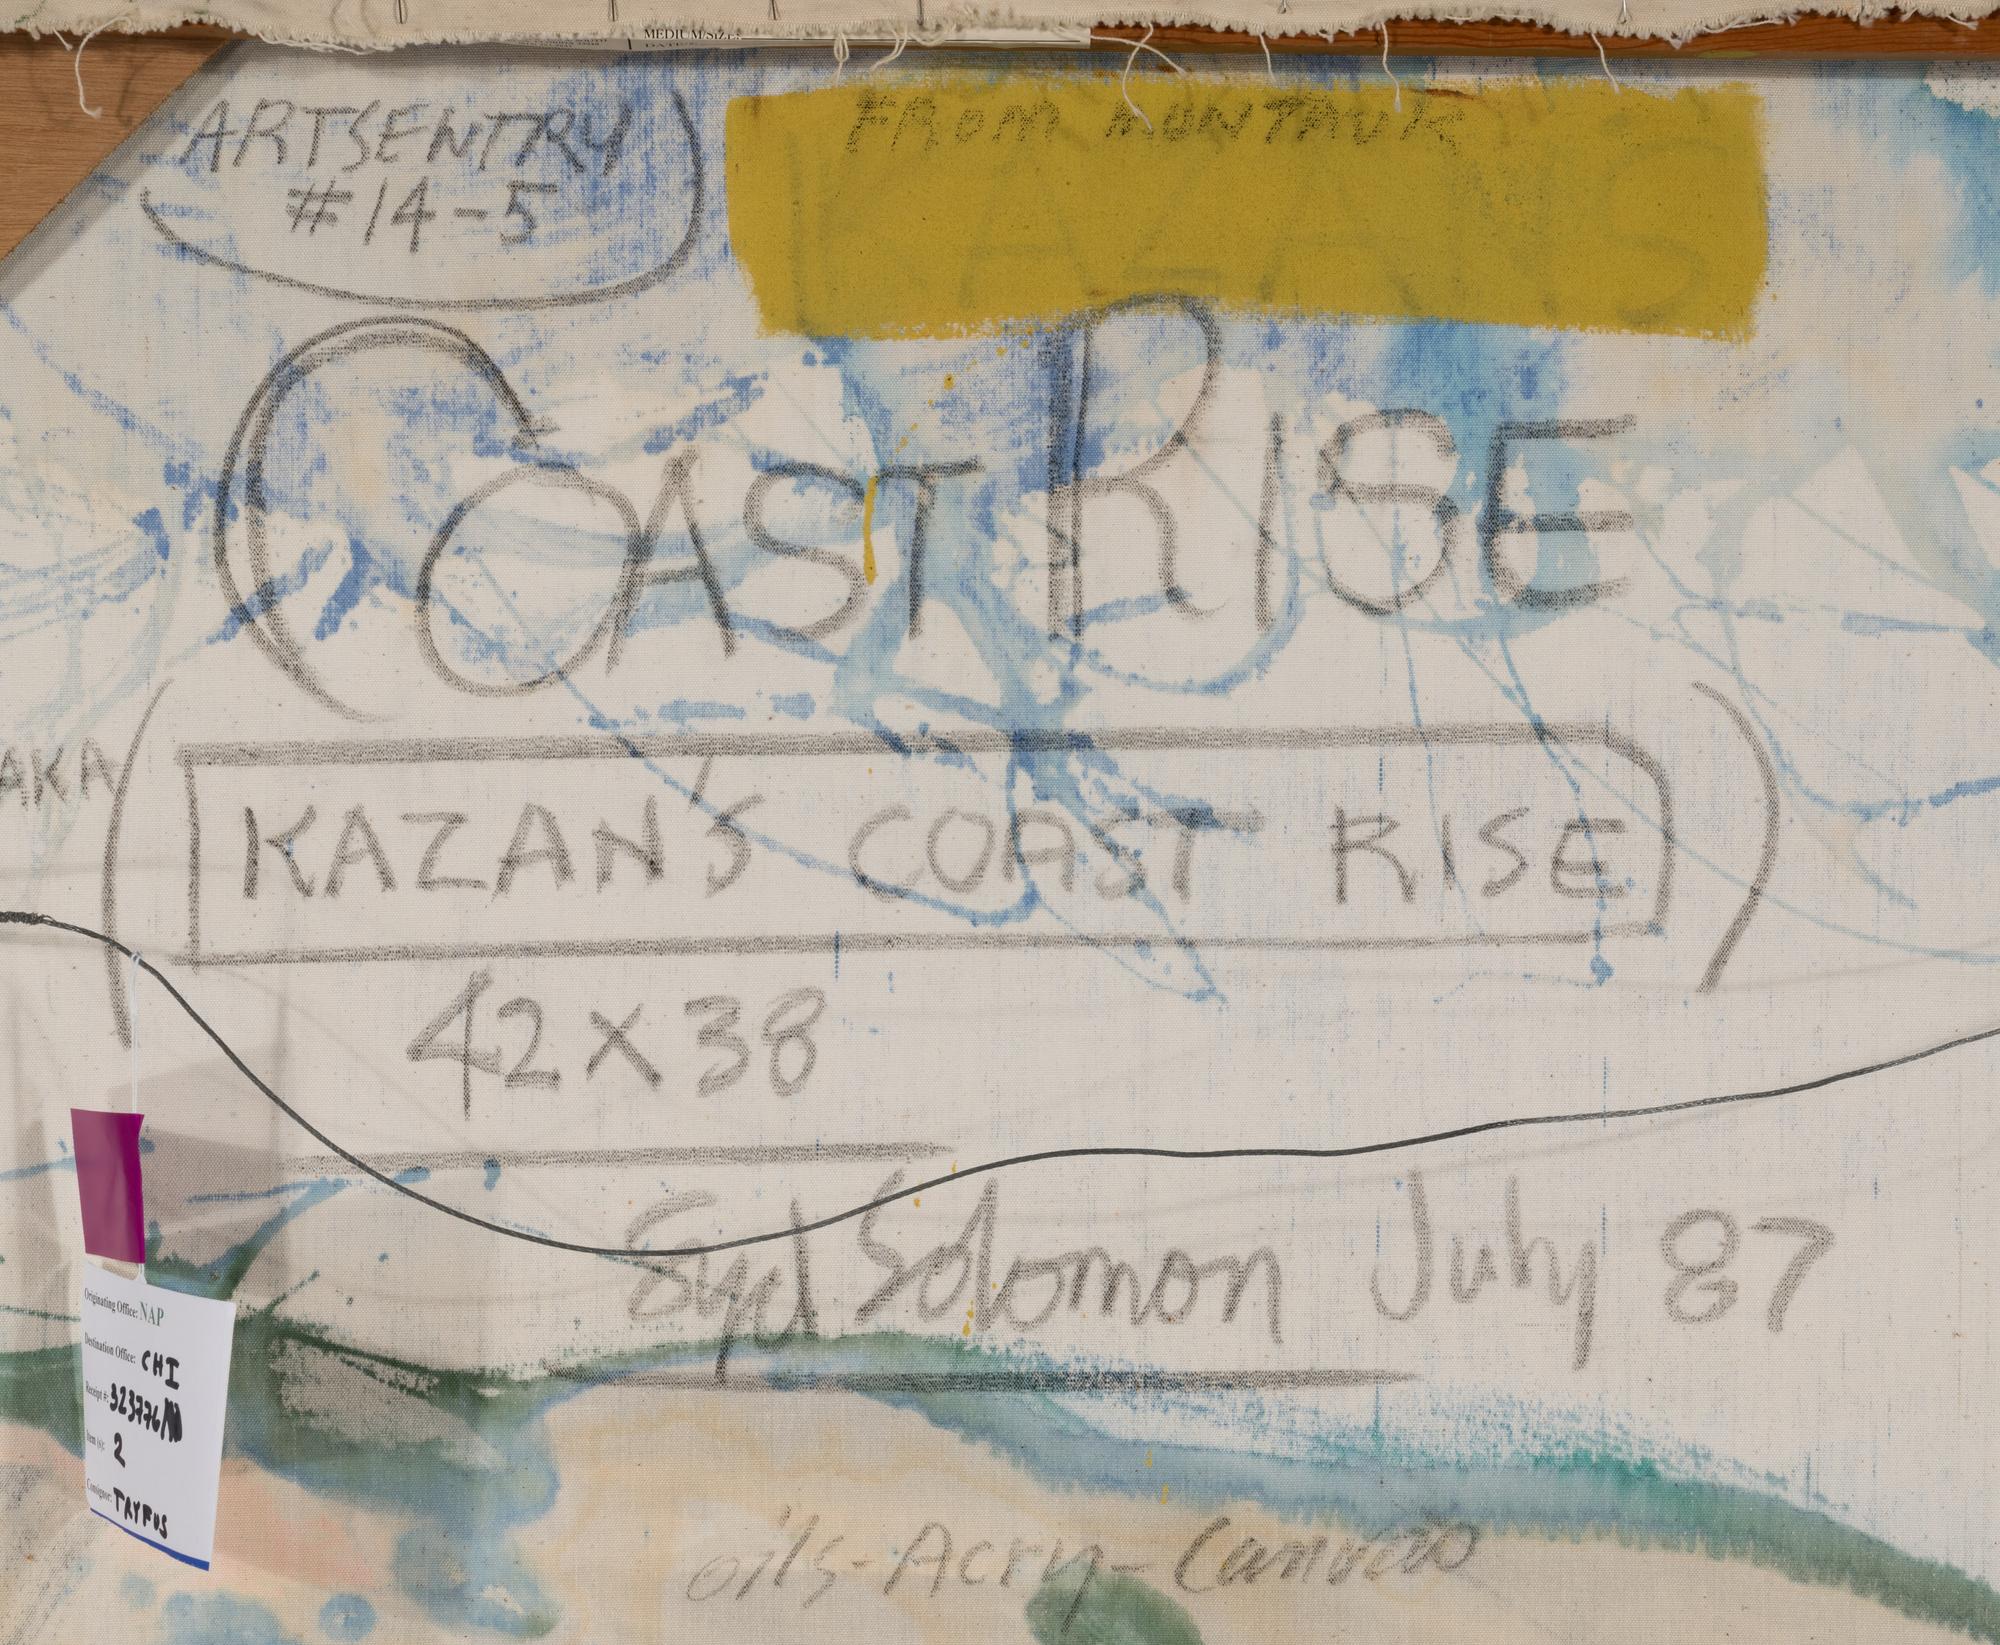 MEDIUM/SIZE:
ARTSENTRY
#14-5
FROM MONTAUK
KAZANS
COAST RISE
AKA
KAZAN'S COAST RISE
42x38
Syd Solomon July 87
Originating Office: NAP
Destination Office: CHI
Receipt #: 323776/
Item (s): 2
Consignor: TAYFUS
oils-Acry-Canvas